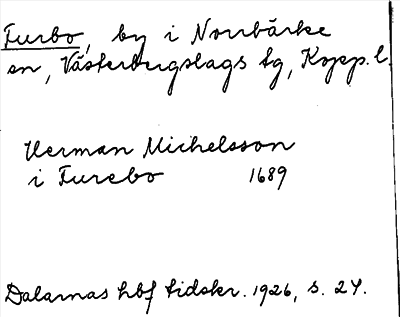 Furbo, by i Norrbärke
sn, Västerbergslags tg, Kopp. l.
Herman Michelsson
i Furebo 1689
Dalarnas hbf tidskr. 1926, s. 24.